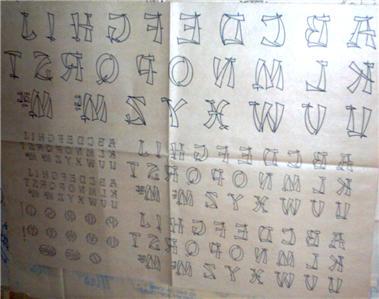 A B C D E F G H I J
K L M N O P Q R S T
U V W X Y Z Mc Mac
A B C D E F G H I J
K L M N O P Q R S T
U V W X Y Z Mc Mac
A B C D E F G H I J
K L M N O P Q R S T
U V W X Y Z Mc Mac
A B C D E F G H I J
K L M N O P Q R S T
U V W X Y Z Mc Mac
A B C D E F G H I J
K L M N O P Q R S T
U V W X Y Z Mc Mac